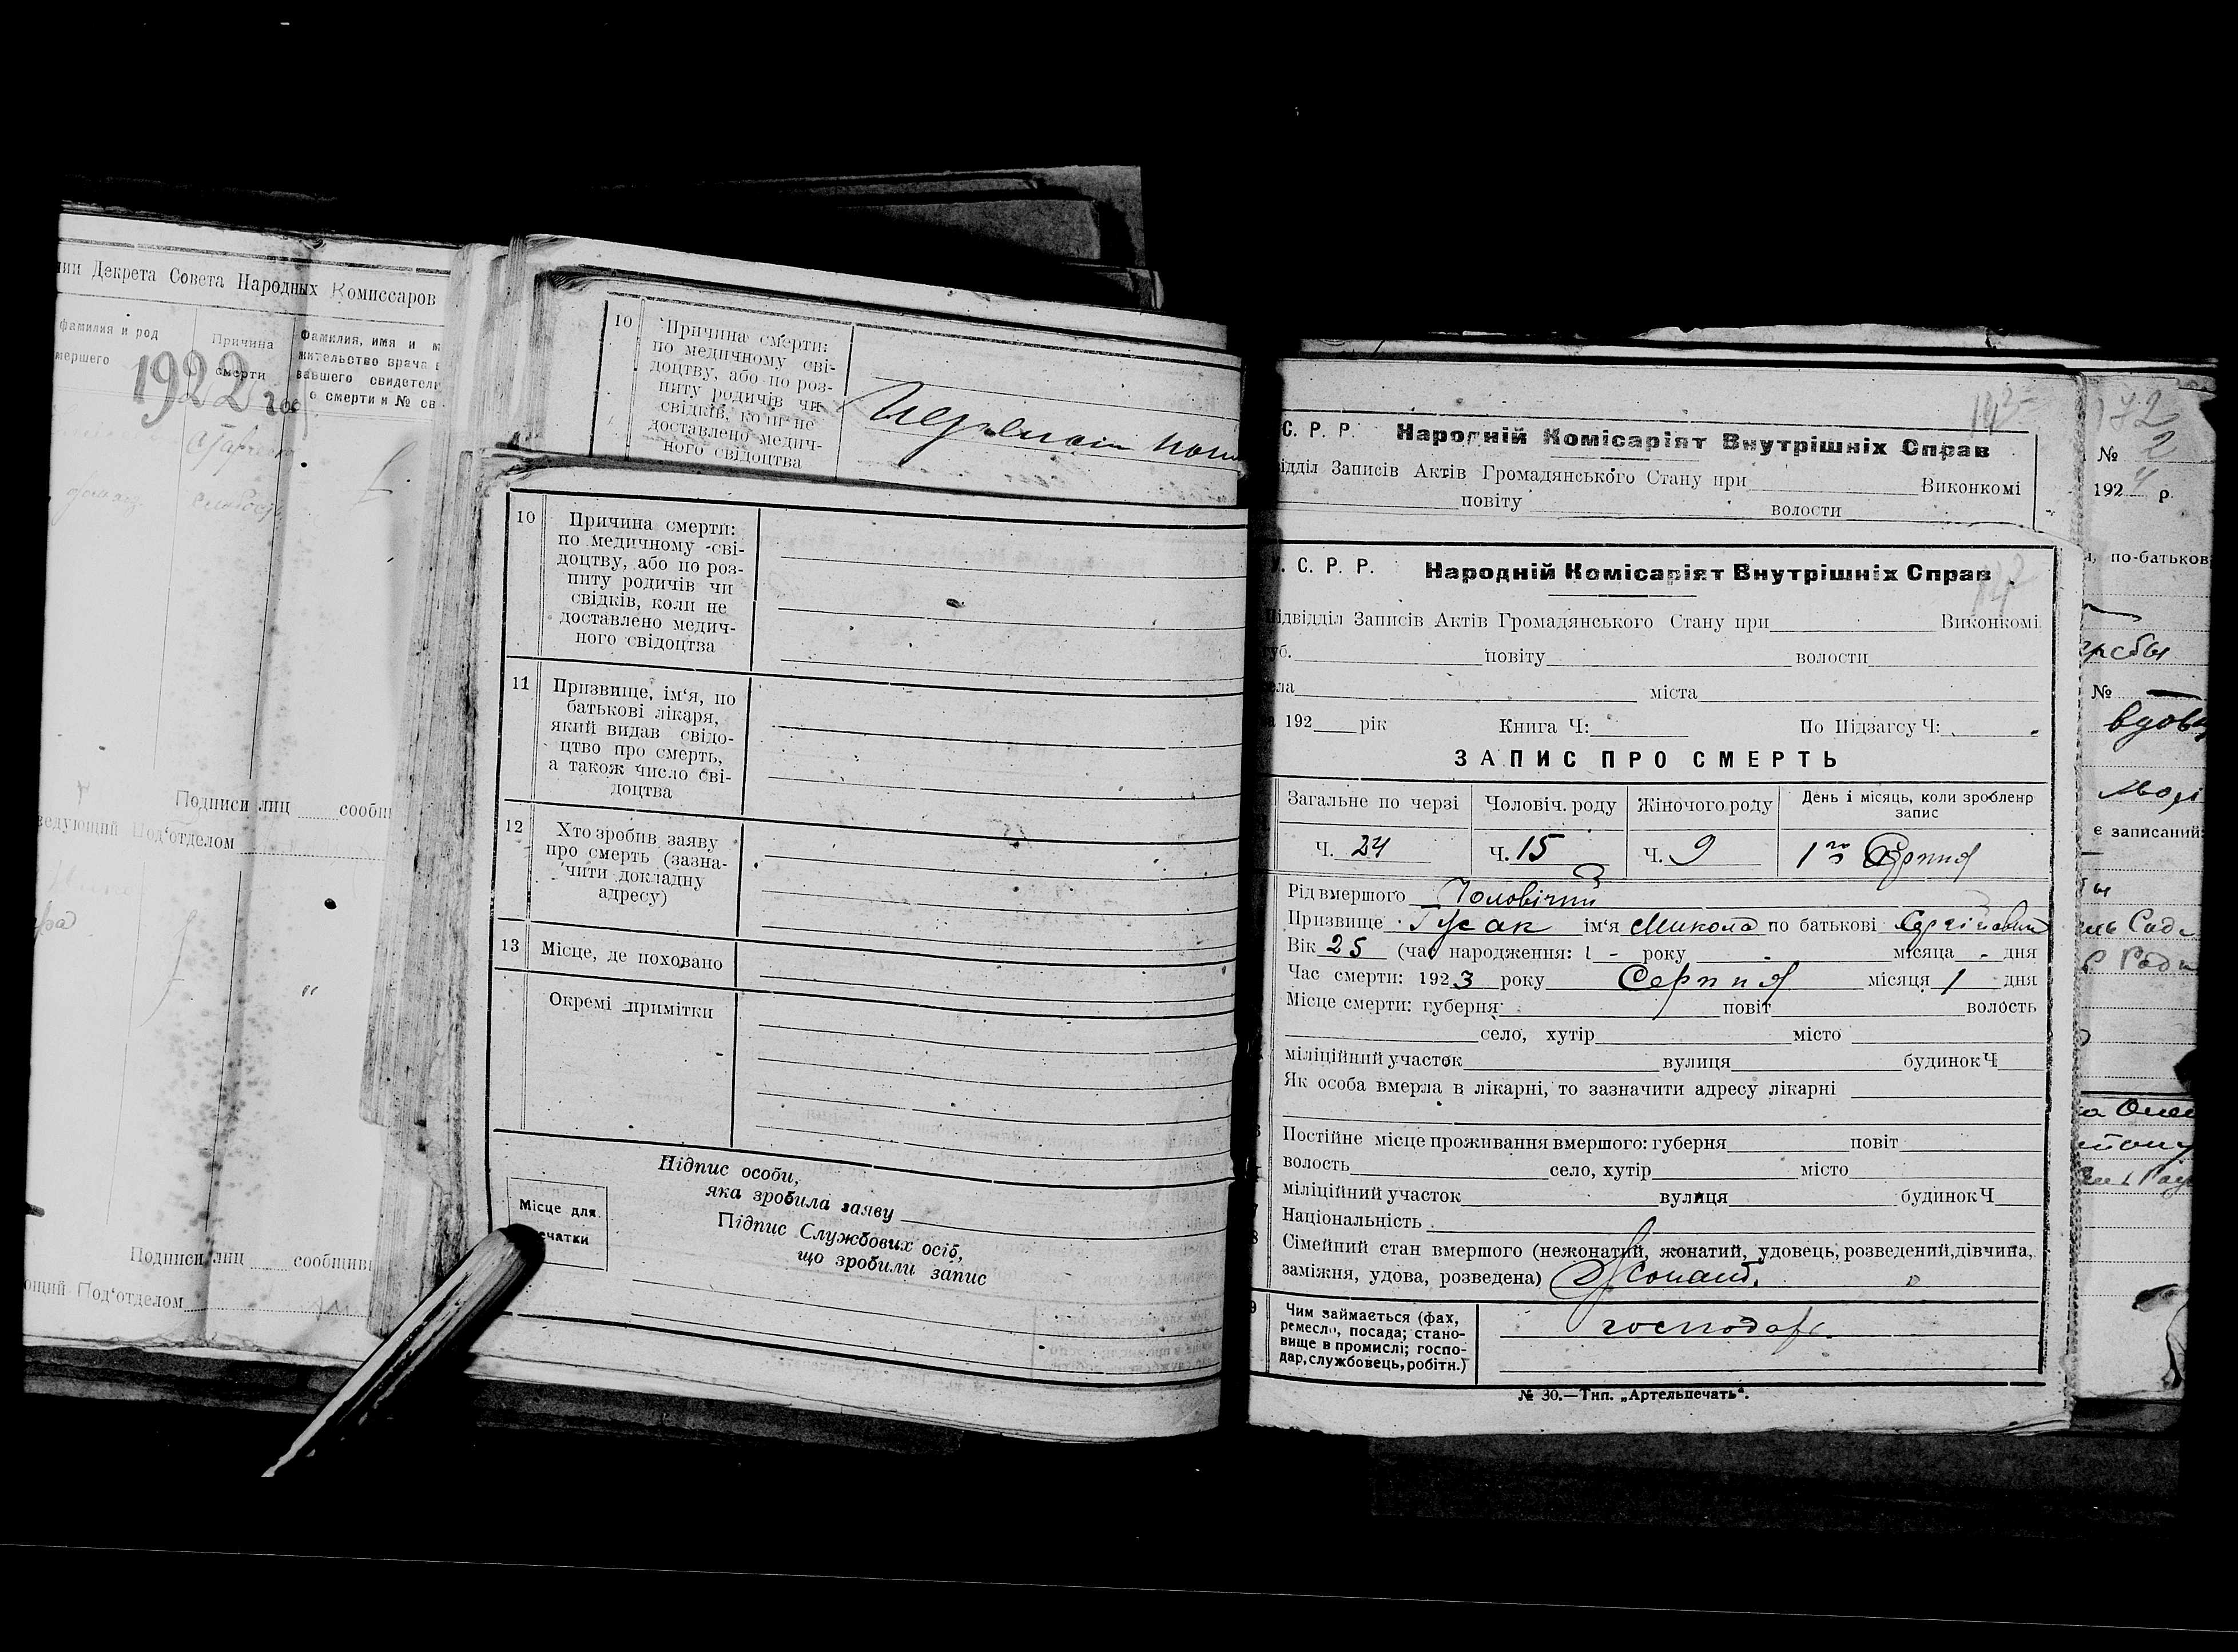 нии Декрета Совета Народных Комиссаров
фамилия и род
мершего
Причина
смерти
Фамилия, имя и м
жительство врача в
вавшего свидетель
о смерти и № св
1922 год
Подписи лиц сообщи
ведующий Под'отделом
Подписи лиц сообщивш
ющий Под'отделом
10 Причина смерти:
по медичному сві-
доцтву, або по роз-
питу родичів чи
свідків, коли не
доставлено медич-
ного свідоцтва
10 Причина смерти:
по медичному сві-
доцтву, або по роз-
питу родичів чи
свідків, коли не
доставлено медич-
ного свідоцтва
11 Призвище, ім'я, по
батькові лікаря,
який видав свідо-
цтво про смерть,
а також число сві-
доцтва
12 Хто зробив заяву
про смерть (зазна-
чити докладну
адресу)
13 Місце, де поховано
Окремі примітки
Підпис особи,
яка зробила заяву
Місце для
ечатки
Підпис Службових осіб,
що зробили запис
С. Р. Р. Народній Комісаріят Внутрішніх Справ
ідділ Записів Актів Громадянського Стану при Виконкомі
повіту волости
С. Р. Р. Народній Комісаріят Внутрішніх Справ
Підвідділ Записів Актів Громадянського Стану при Виконкомі
уб. повіту волости
ела міста
а 192 рік Книга Ч: По Підзагсу Ч:
ЗАПИС ПРО СМЕРТЬ
Загальне по черзі Чоловіч. роду Жіночого роду День і місяць, коли зроблено
запис
Ч. 24 Ч. 15 Ч. 9 1го Серпня
Рід вмершого Чоловічий
Призвище Гусак ім'я Микола по батькові Сергійович
Вік 25 (час народження: 1 - року - місяца - дня
Час смерти: 1923 року Серпня місяця 1 дня
Місце смерти: губерня повіт волость
село, хутір місто
міліційний участок вулиця будинок Ч
Як особа вмерла в лікарні, то зазначити адресу лікарні
Постійне місце проживання вмершого: губерня повіт
волость село, хутір місто
міліційний участок вулиця будинок Ч
Національність
Сімейний стан вмершого (нежонатий, жонатий, удовець, розведений, дівчина,
заміжня, удова, розведена) Жонат.
9 Чим займається (фах,
ремесло, посада; стано-
вище в промислі; госпо-
дар, службовець, робітн.)
господар.
№ 30.—Тип. „Артельпечать".
172
№ 2
1924 р.
и, по-батькові
№ —
вдова
є записаний: